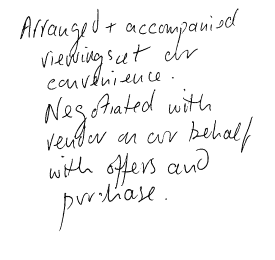 Arranged + accompanied
viewings at our
convenience.
Negotiated with
vendor on our behalf
with offers and
purchase.